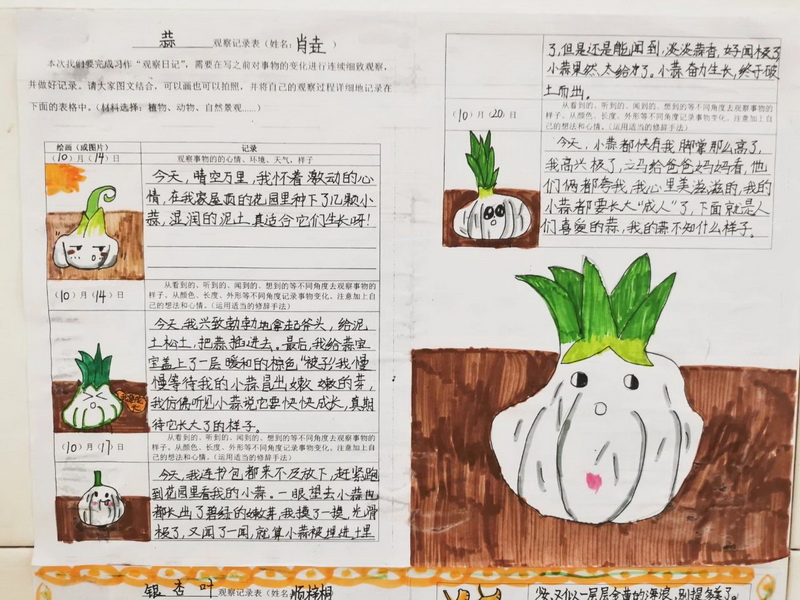 蒜 观察记录表(姓名:肖垚 )
本次我们要完成习作“观察日记”,需要在写之前对事物的变化进行连续细致观察,
并做好记录。请大家图文结合,可以画也可以拍照,并将自己的观察过程详细地记录在
下面的表格中。(材料选择:植物、动物、自然景观……)
绘画(或图片) 记录
(10)月(14)日 观察事物的的心情、环境、天气,样子
今天,晴空万里,我怀着激动的心
情,在我家屋顶的花园里种下了几颗小
蒜,湿润的泥土真适合它们生长呀!
(10)月(14)日 从看到的、听到的、闻到的、想到的等不同角度去观察事物的
样子,从颜色、长度、外形等不同角度记录事物变化,注意加上自
己的想法和心情。(运用适当的修辞手法)
今天我兴致勃勃地拿起斧头,给泥
土松土,把蒜插进去。最后,我给蒜宝
宝盖上了一层暖和的棕色“被子”我慢
慢等待我的小蒜冒出嫩嫩的芽,
我仿佛听见小蒜说它要快快成长,真期
待它长大了的样子。
(10)月(17)日 从看到的、听到的、闻到的、想到的等不同角度去观察事物的
样子,从颜色、长度、外形等不同角度记录事物变化,注意加上自
己的想法和心情。(运用适当的修辞手法)
今天,我连书包都来不及放下,赶紧跑
到花园里看我的小蒜。一眼望去小蒜
都长出了碧绿的嫩芽,我摸了一摸,光滑
极了,又闻了一闻,就算小蒜被埋进土里
了,但是还是能闻到,淡淡蒜香,好闻极了
小蒜果然太给力了。小蒜奋力生长,终于破
土而出。
(10)月(20)日 从看到的、听到的、闻到的、想到的等不同角度去观察事物的
样子,从颜色、长度、外形等不同角度记录事物变化,注意加上自
己的想法和心情。(运用适当的修辞手法)
今天,小蒜都快有我脚掌那么高了,
我高兴极了,立马给爸爸妈妈看,他
们俩都夸我,我心里美滋滋的,我的
小蒜都要长大“成人”了,下面就是人
们喜爱的蒜,我的蒜不知什么样子。
银杏叶 观察记录表(姓名:
又似一层层金黄的海浪,别提多美了。